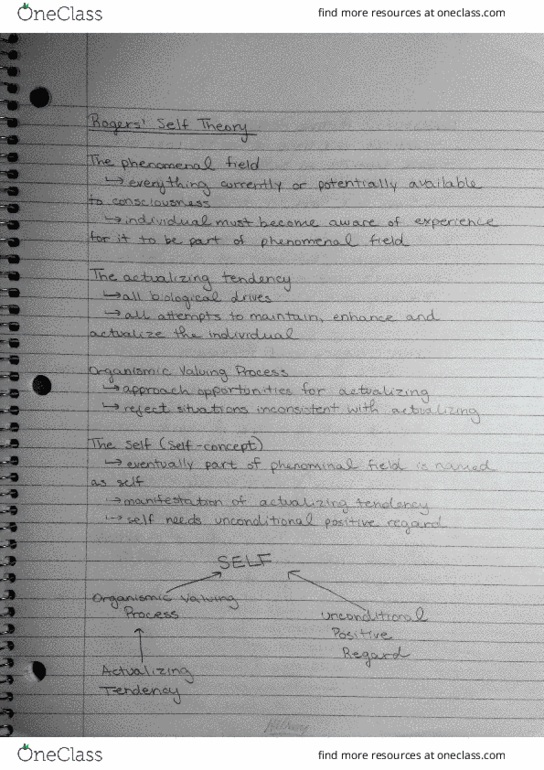 OneClass
find more resources at oneclass.com
Rogers' Self Theory
The phenomenal field
↳ everything currently or potentially available
to consciousness
↳ individual must become aware of experience
for it to be part of phenomenal field
The actualizing tendency
↳ all biological drives
↳ all attempts to maintain, enhance and
actualize the individual
Organismic Valuing Process
↳ approach opportunities for actualizing
↳ reject situations inconsistent with actualizing
The self (self-concept)
↳ eventually part of phenominal field is named
as self
↳ manifestation of actualizing tendency
↳ self needs unconditional positive regard
SELF
Organismic Valuing
Process
Unconditional
Positive
Regard
Actualizing
Tendency
OneClass
find more resources at oneclass.com